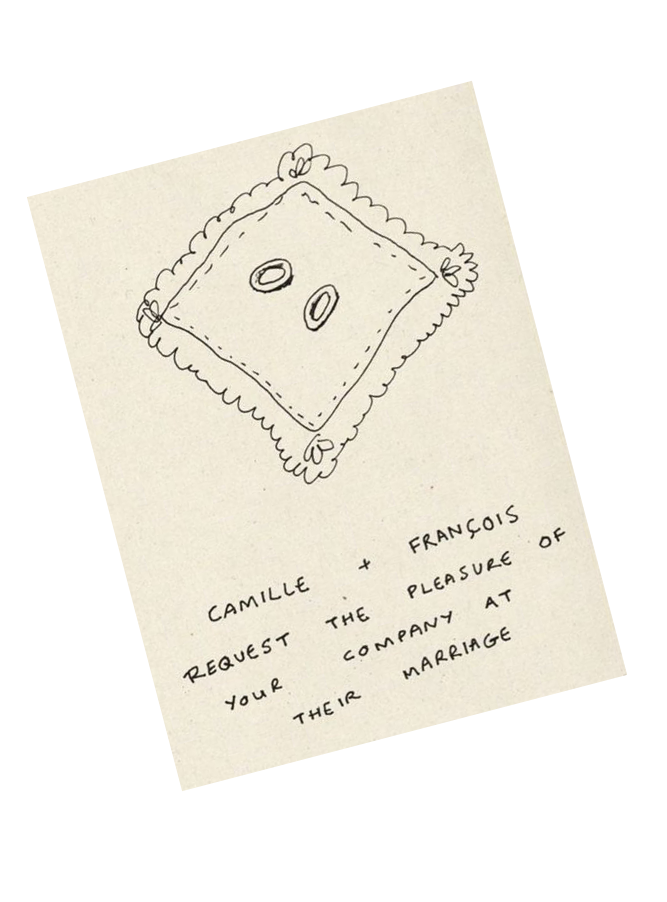 CAMILLE + FRANÇOIS
REQUEST THE PLEASURE OF
YOUR COMPANY AT
THEIR MARRIAGE